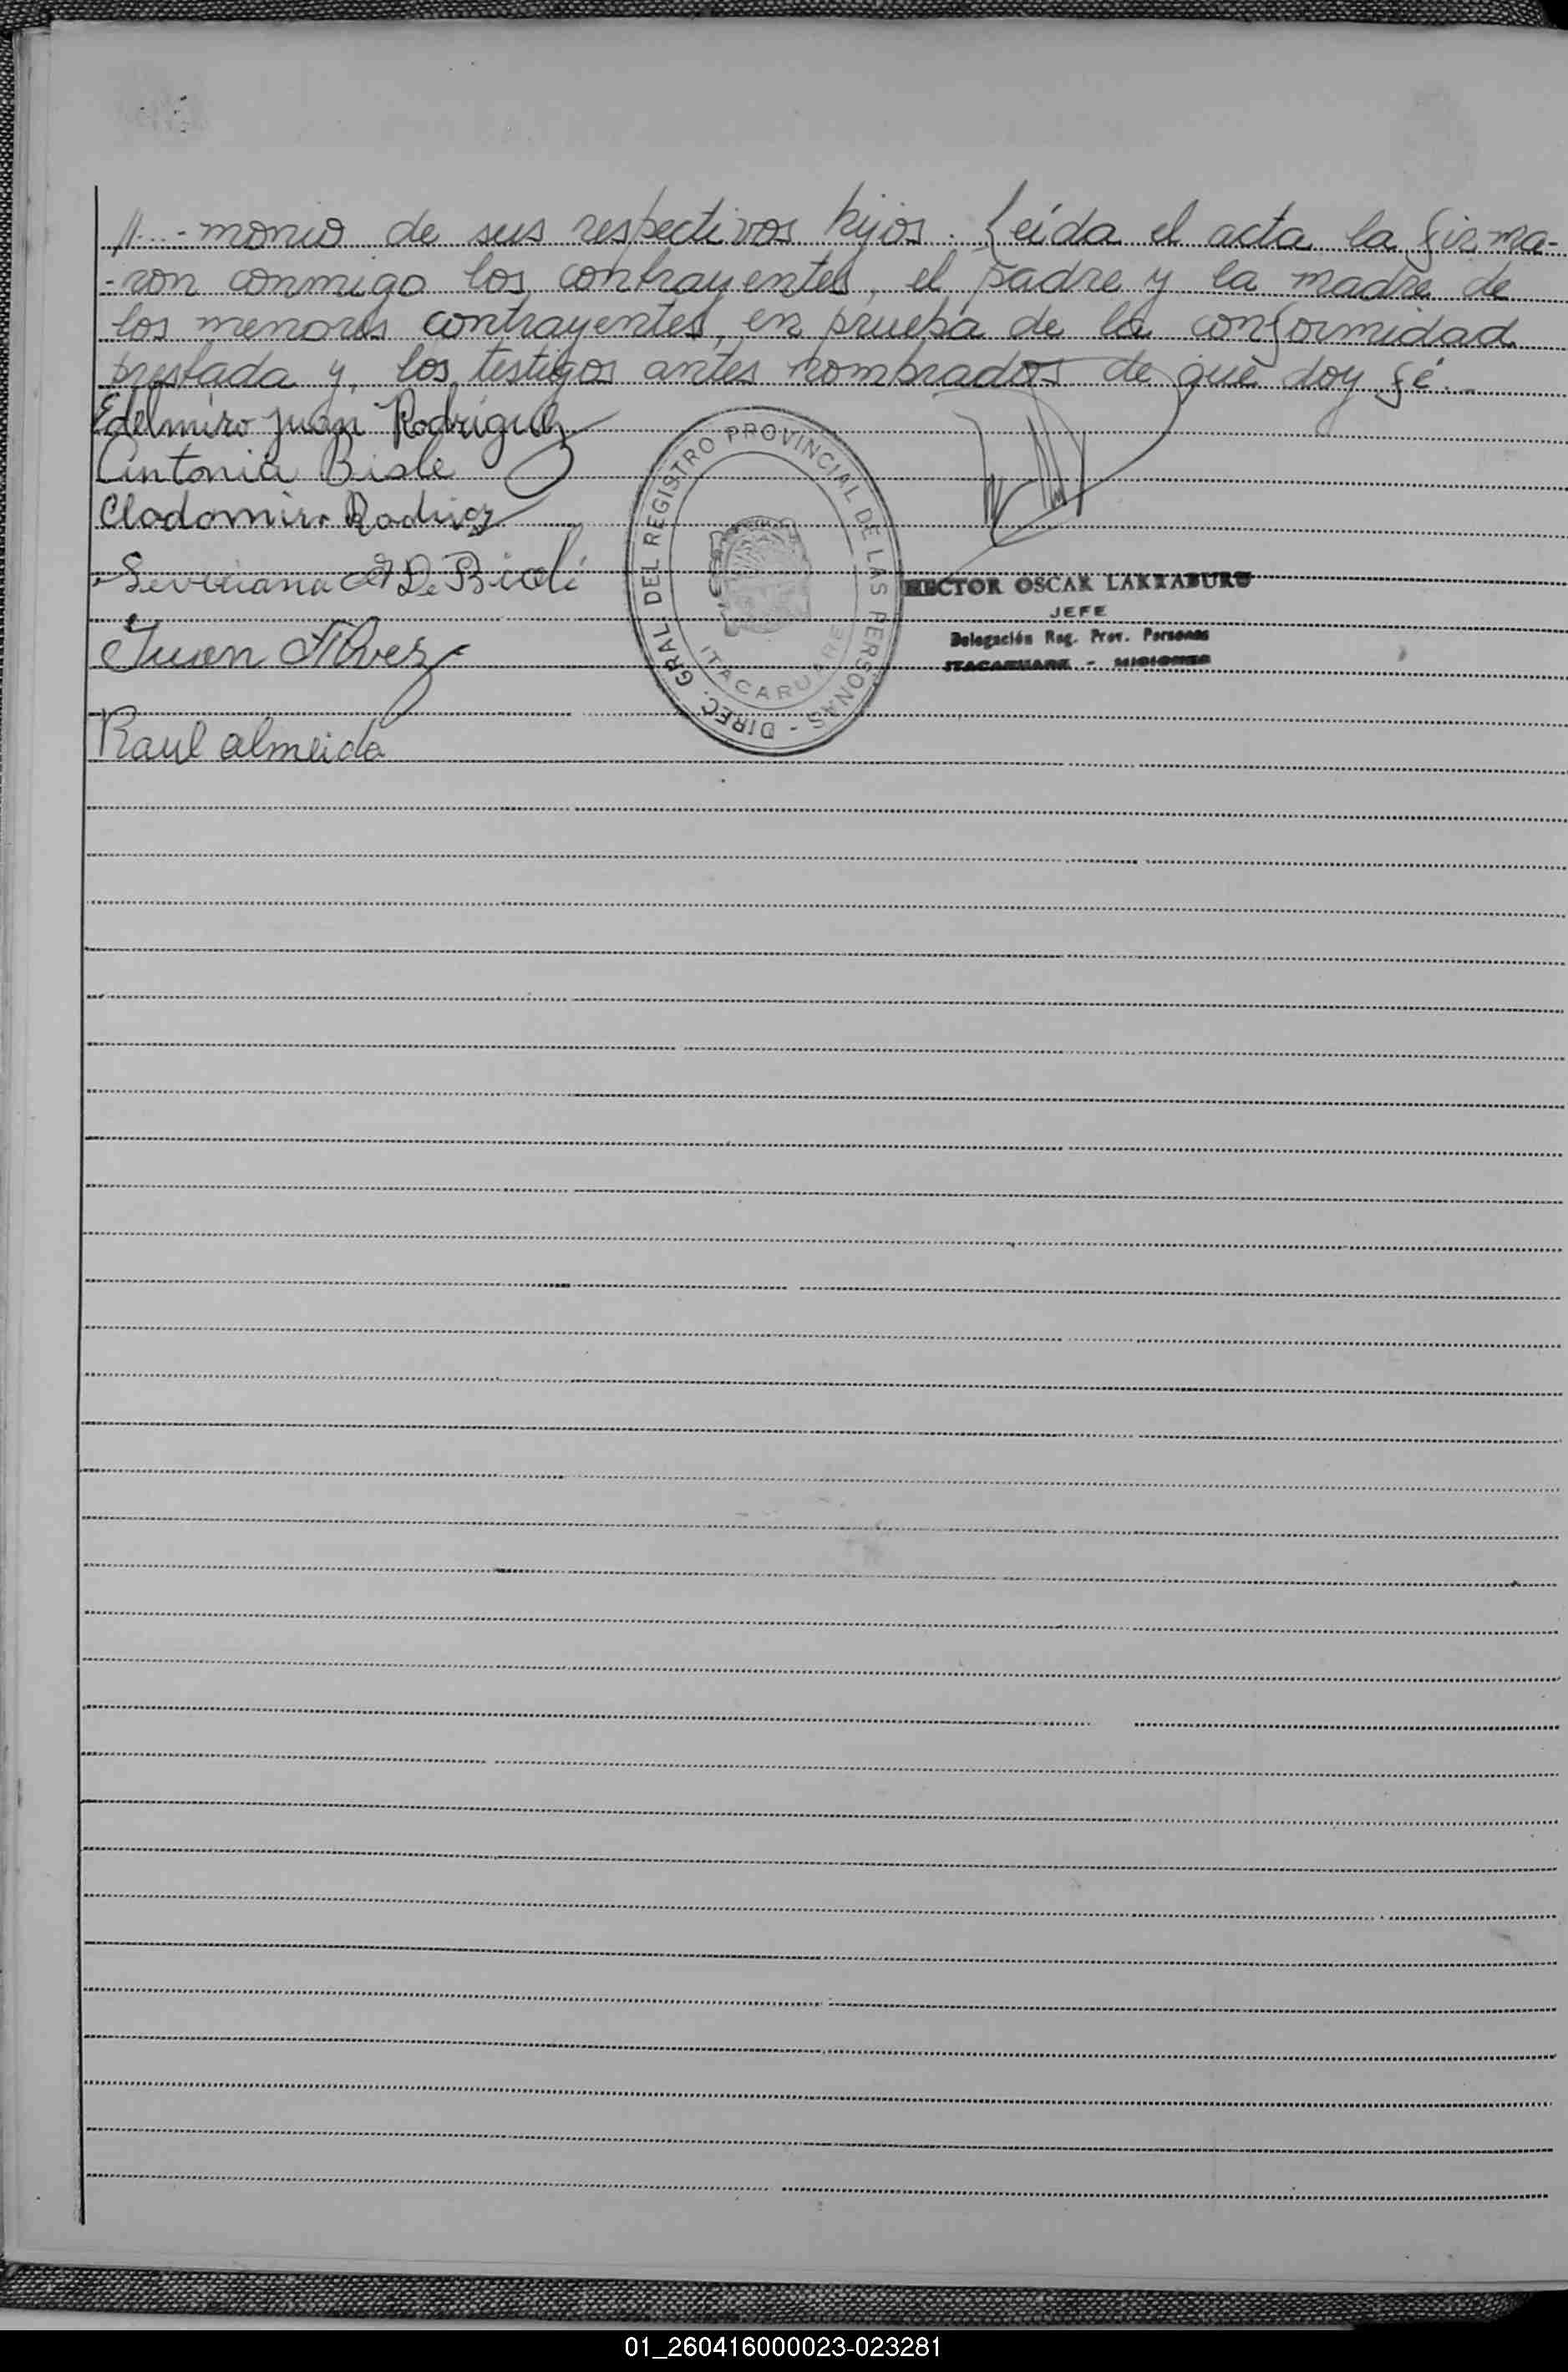 //..-monio de sus respectivos hijos. Leída el acta la firma-
-ron conmigo los contrayentes, el padre y la madre de
los menores contrayentes, en prueba de la conformidad
prestada y, los testigos antes nombrados de que doy fé.-
Edelmiro Juan Rodriguez
Antonia Bisle
Clodomiro Rodrigz
Juan Alvez
Raul almeida
DIREC. GRAL DEL REGISTRO PROVINCIAL DE LAS PERSONAS -
ITACARUARE
HECTOR OSCAR LARRABURU
JEFE
Delegación Reg. Prov. Personas
ITACARUARE - MISIONES
01_260416000023-023281